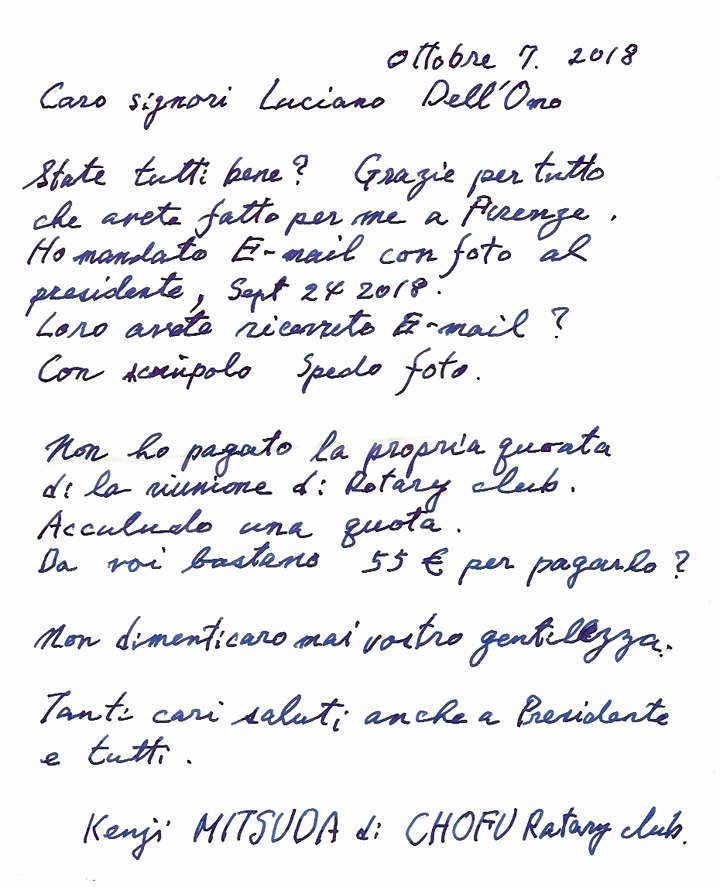 Ottobre 7. 2018
Caro signori Luciano Dell'Omo
State tutti bene? Grazie per tutto
che avete fatto per me a Firenze.
Ho mandato E-mail con foto al
presidente, Sept 24 2018.
Loro avete ricevuto E-mail?
Con spedo foto.
Non ho pagato la propria quota
di la riunione di Rotary club.
Accludo una quota.
Da voi bastano 55 € per pagarlo?
Non dimenticaro mai vostro gentilezza.
Tanti cari saluti anche a Presidente
e tutti.
Kenji MITSUDA di CHOFU Rotary club.